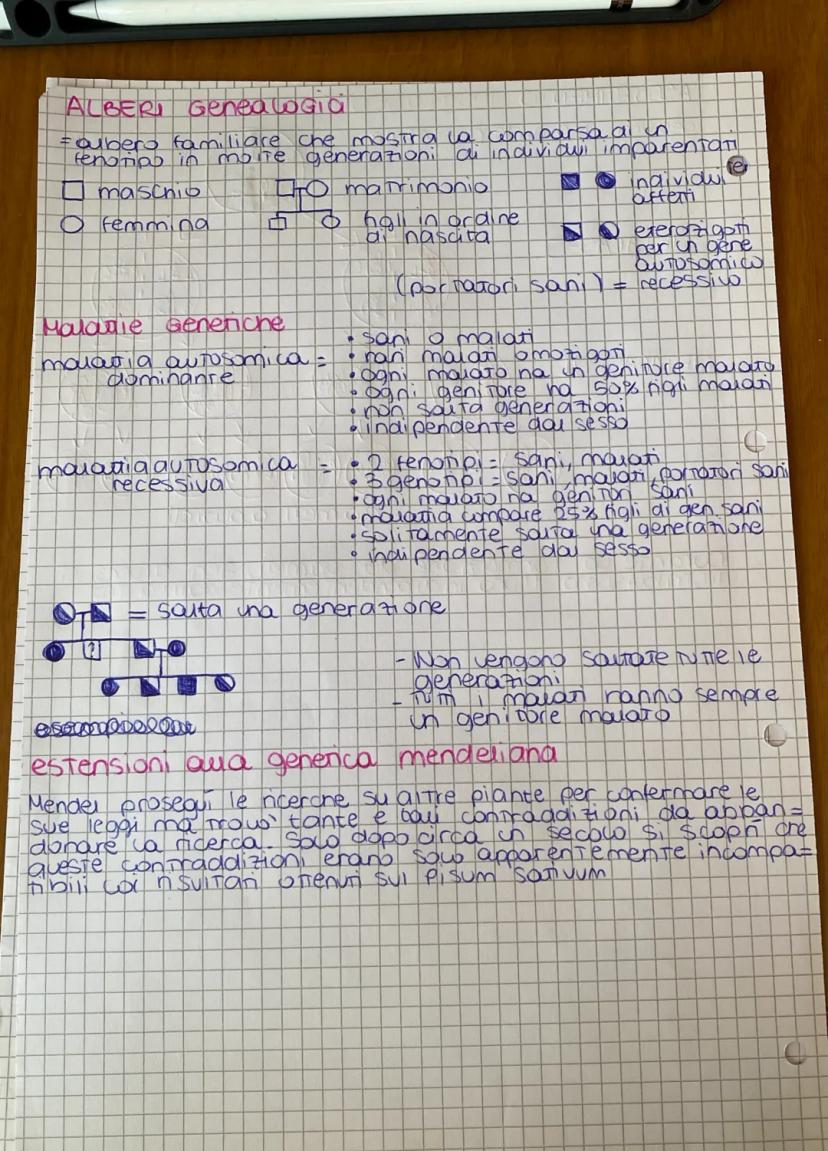 ALBERI Genealogici
= albero familiare che mostra la comparsa di un
fenotipo in molte generazioni di individui imparentati
maschio
matrimonio
individui
affetti
e
femmina
figli in ordine
di nascita
eterozigoti
per un gene
autosomico
(portatori sani) = recessivo
Malattie Genetiche
malattia autosomica =
dominante
• sani o malati
• rari malati omozigoti
• ogni malato ha un genitore malato
• ogni genitore ha 50% figli malati
• non salta generazioni
• indipendente dal sesso
malattia autosomica =
recessiva
• 2 fenotipi = sani, malati
• 3 genotipi = sani, malati, portatori sani
• ogni malato ha genitori sani
• malattia compare 25% figli di gen. sani
• solitamente salta una generazione
• indipendente dal sesso
= salta una generazione
?
- Non vengono saltate tutte le
generazioni
- Tutti i malati hanno sempre
un genitore malato
estensioni alla genetica mendeliana
Mendel proseguì le ricerche su altre piante per confermare le
sue leggi ma trovò tante e tali contraddizioni da abban=
donare la ricerca. Solo dopo circa un secolo si scoprì che
queste contraddizioni erano solo apparentemente incompa=
tibili coi risultati ottenuti sul Pisum sativum